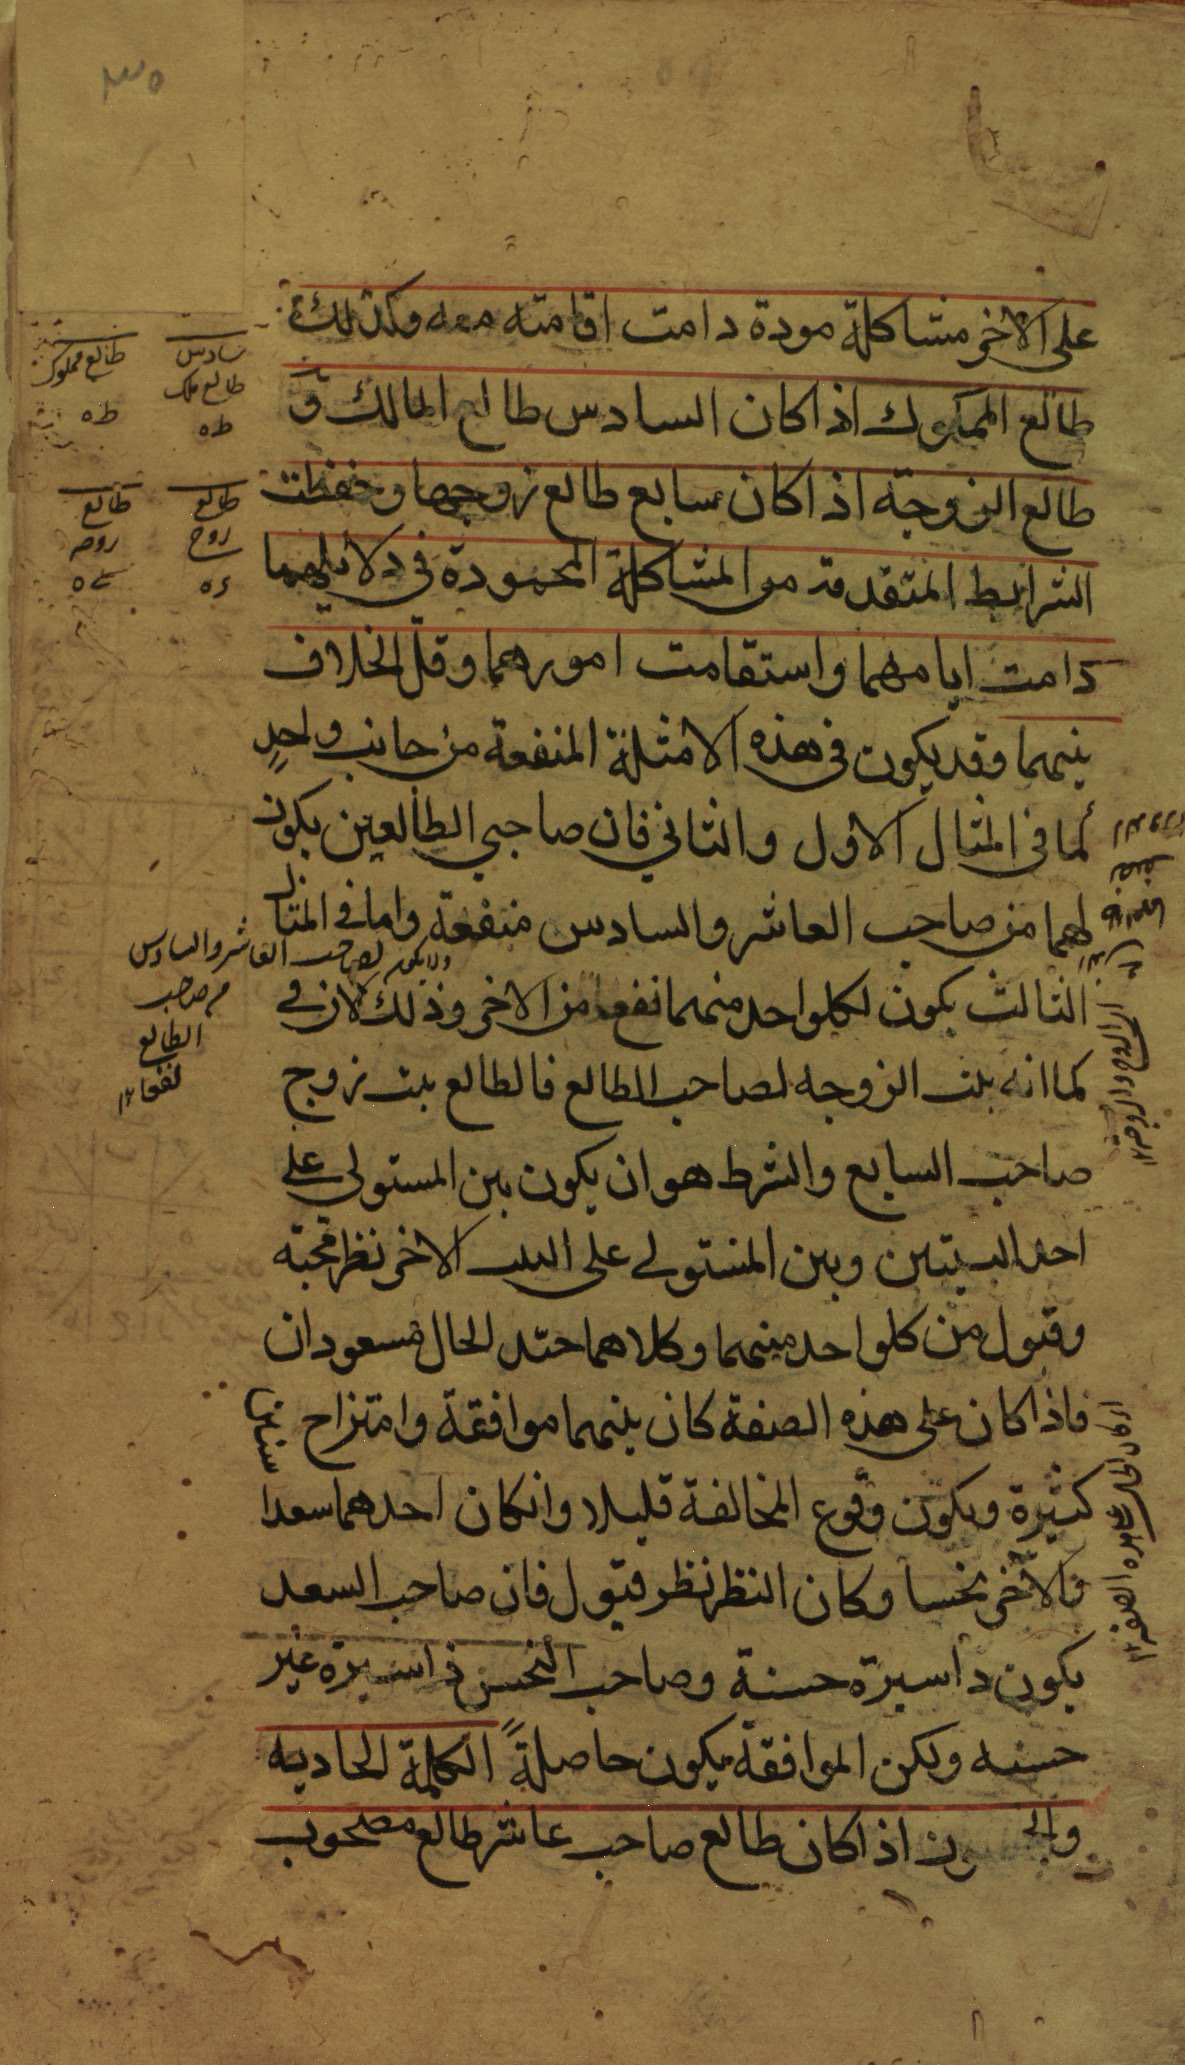 ٣٥
على الاخر مشاكلة مودة دامت اقامته معه وكذلك
طالع المملوك اذا كان السادس طالع المالك و
طالع الزوجة اذا كان سابع طالع زوجها وحفظت
الشرايط المتقدمة من المشاكلة المحمودة في دلايلهما
دامت ايامهما واستقامت امورهما وقل الخلاف
بينهما وقد يكون في هذه الامثلة المنفعة من جانب واحدٍ
كما في المثال الاول والثاني فان صاحبي الطالعين يكون
لهما من صاحب العاشر والسادس منفعة واما في المثال
الثالث يكون لكلواحد منهما نفعا من الاخر وذلك لان في
كما انه بيت الزوجه لصاحب الطالع فالطالع بيت زوج
صاحب السابع والشرط هو ان يكون بين المستولى على
احد البيتين وبين المستولي على البيت الاخر نظر محبة
وقبول من كلواحد منهما وكلاهما جيد الحال مسعودان
فاذا كان على هذه الصفة كان بينهما موافقة وامتزاج
كثيرة ويكون وقوع المخالفة قليلا وانكان احدهما سعدا
والاخر نحسا وكان النظر نظر قبول فان صاحب السعد
يكون ذا سيرة حسنة وصاحب النحس ذا سيرة غير
حسنه ولكن الموافقة يكون حاصلةً الكلمة الحاديه
اذا كان طالع صاحب عاشر طالع مصحوب
سادس
طالع ملك
ط ه
طالع مملوك
ط ه
طالع
زوج
طالع
زوجه
ولا يكون لصاحب العاشر والسادس
من صاحب
الطالع
نفعا ١٢